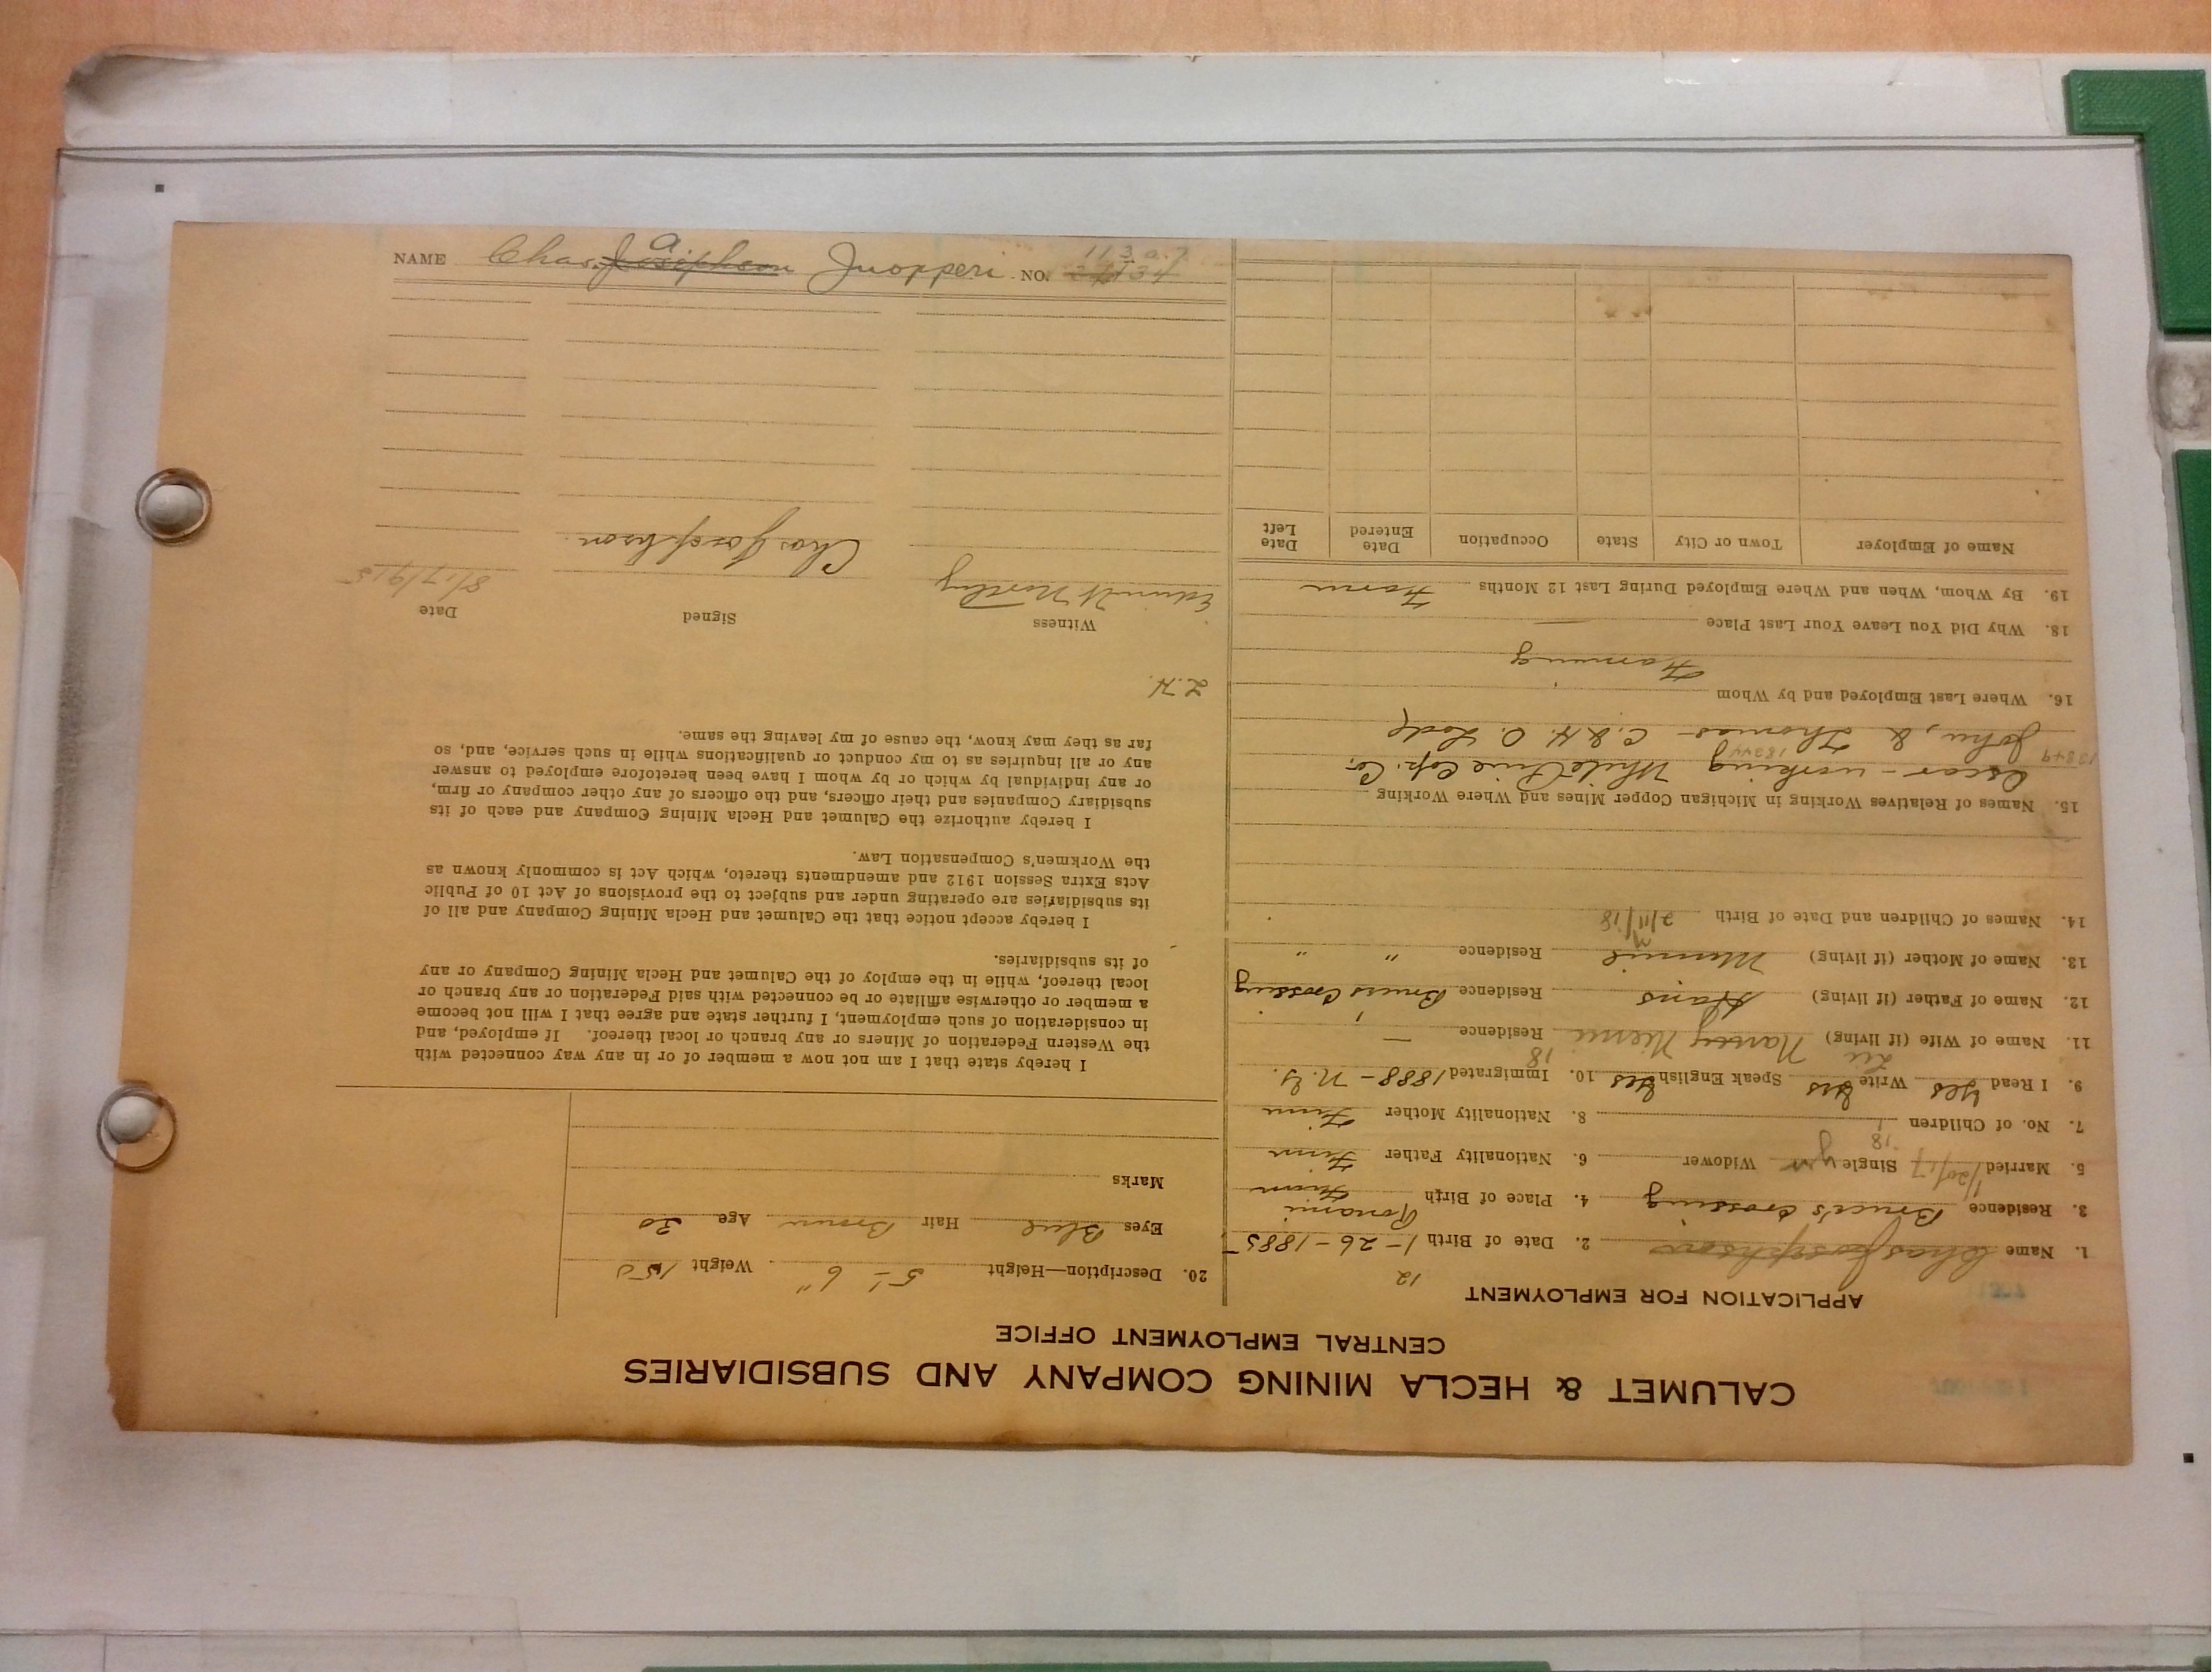 CALUMET & HECLA MINING COMPANY AND SUBSIDIARIES
CENTRAL EMPLOYMENT OFFICE
APPLICATION FOR EMPLOYMENT
12
1. Name Chas Josephson 2. Date of Birth 1-26-1885
3. Residence Bruce's Crossing 4. Place of Birth Finn
5. Married 1/20/17 Single yes Widower 6. Nationality Father Finn
18
7. No. of Children 1 8. Nationality Mother Finn
9. I Read Yes Write Yes Speak English Yes 10. Immigrated 1888 - N.Y.
18
11. Name of Wife (if living) Residence —
12. Name of Father (if living) Hans Residence Bruce's Crossing
13. Name of Mother (if living) Minnie Residence " "
14. Names of Children and Date of Birth 2/11/18
15. Names of Relatives Working in Michigan Copper Mines and Where Working
Oscar - working White Pine Cop. Co.
13849 18244
John, & Thomas - C. & H. O. Lode
16. Where Last Employed and by Whom
Farming
18. Why Did You Leave Your Last Place —
19. By Whom, When and Where Employed During Last 12 Months Farm
Name of Employer Town or City State Occupation Date Entered Date Left
20. Description—Height 5' - 6" Weight 150
Eyes Blue Hair Brown Age 30
Marks
I hereby state that I am not now a member of or in any way connected with
the Western Federation of Miners or any branch or local thereof. If employed, and
in consideration of such employment, I further state and agree that I will not become
a member or otherwise affiliate or be connected with said Federation or any branch or
local thereof, while in the employ of the Calumet and Hecla Mining Company or any
of its subsidiaries.
I hereby accept notice that the Calumet and Hecla Mining Company and all of
its subsidiaries are operating under and subject to the provisions of Act 10 of Public
Acts Extra Session 1912 and amendments thereto, which Act is commonly known as
the Workmen's Compensation Law.
I hereby authorize the Calumet and Hecla Mining Company and each of its
subsidiary Companies and their officers, and the officers of any other company or firm,
or any individual by which or by whom I have been heretofore employed to answer
any or all inquiries as to my conduct or qualifications while in such service, and, so
far as they may know, the cause of my leaving the same.
L.H.
Witness Signed Date
Chas Josephson 8/17/915
NAME Chas. Josephson a Juopperi NO.